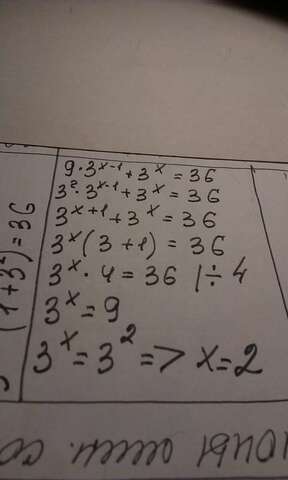 9·3^(x-1) + 3^x = 36
3²·3^(x-1) + 3^x = 36
3^(x+1) + 3^x = 36
3^x (3+1) = 36
3^x · 4 = 36 |÷4
3^x = 9
3^x = 3² => x=2
(1+3²)=36